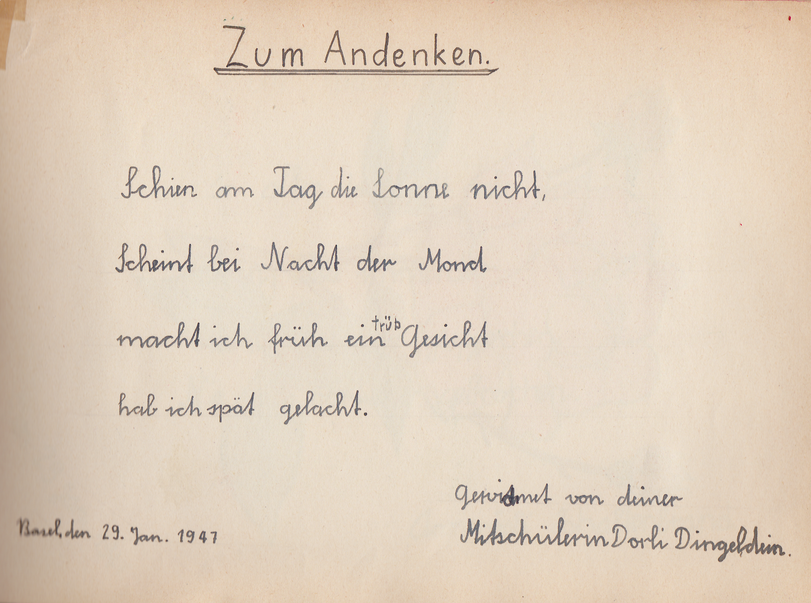 Zum Andenken.
Schien am Tag die Sonne nicht,
Scheint bei Nacht der Mond
macht ich früh ein trüb Gesicht
hab ich spät gelacht.
Gewidmet von deiner
Mitschülerin Dorli Dingeldein.
Basel, den 29. Jan. 1947